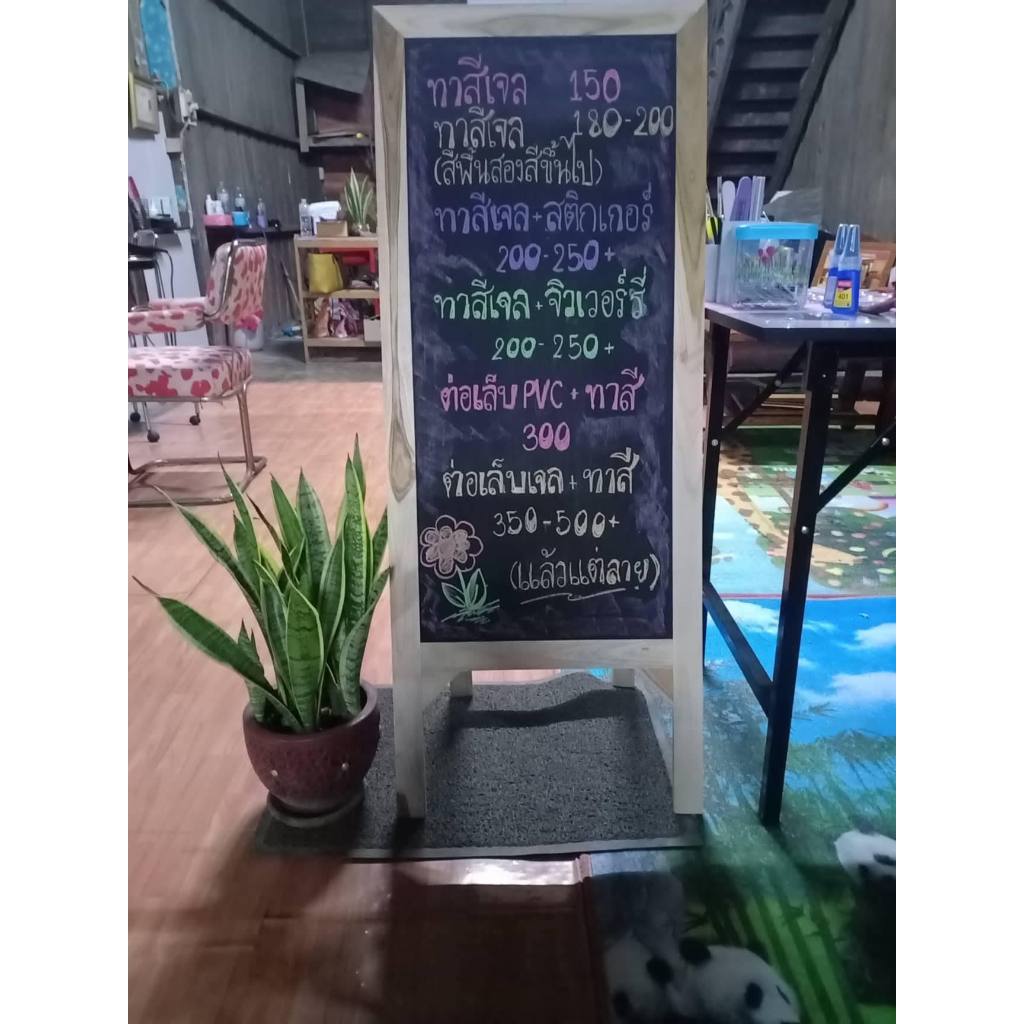 ทาสีเจล 150
ทาสีเจล 180-200
(สีพื้นสองสีขึ้นไป)
ทาสีเจล+สติกเกอร์
200-250+
ทาสีเจล+จิวเวอร์รี่
200-250+
ต่อเล็บ PVC + ทาสี
300
ต่อเล็บเจล + ทาสี
350-500+
(แล้วแต่ลาย)
401